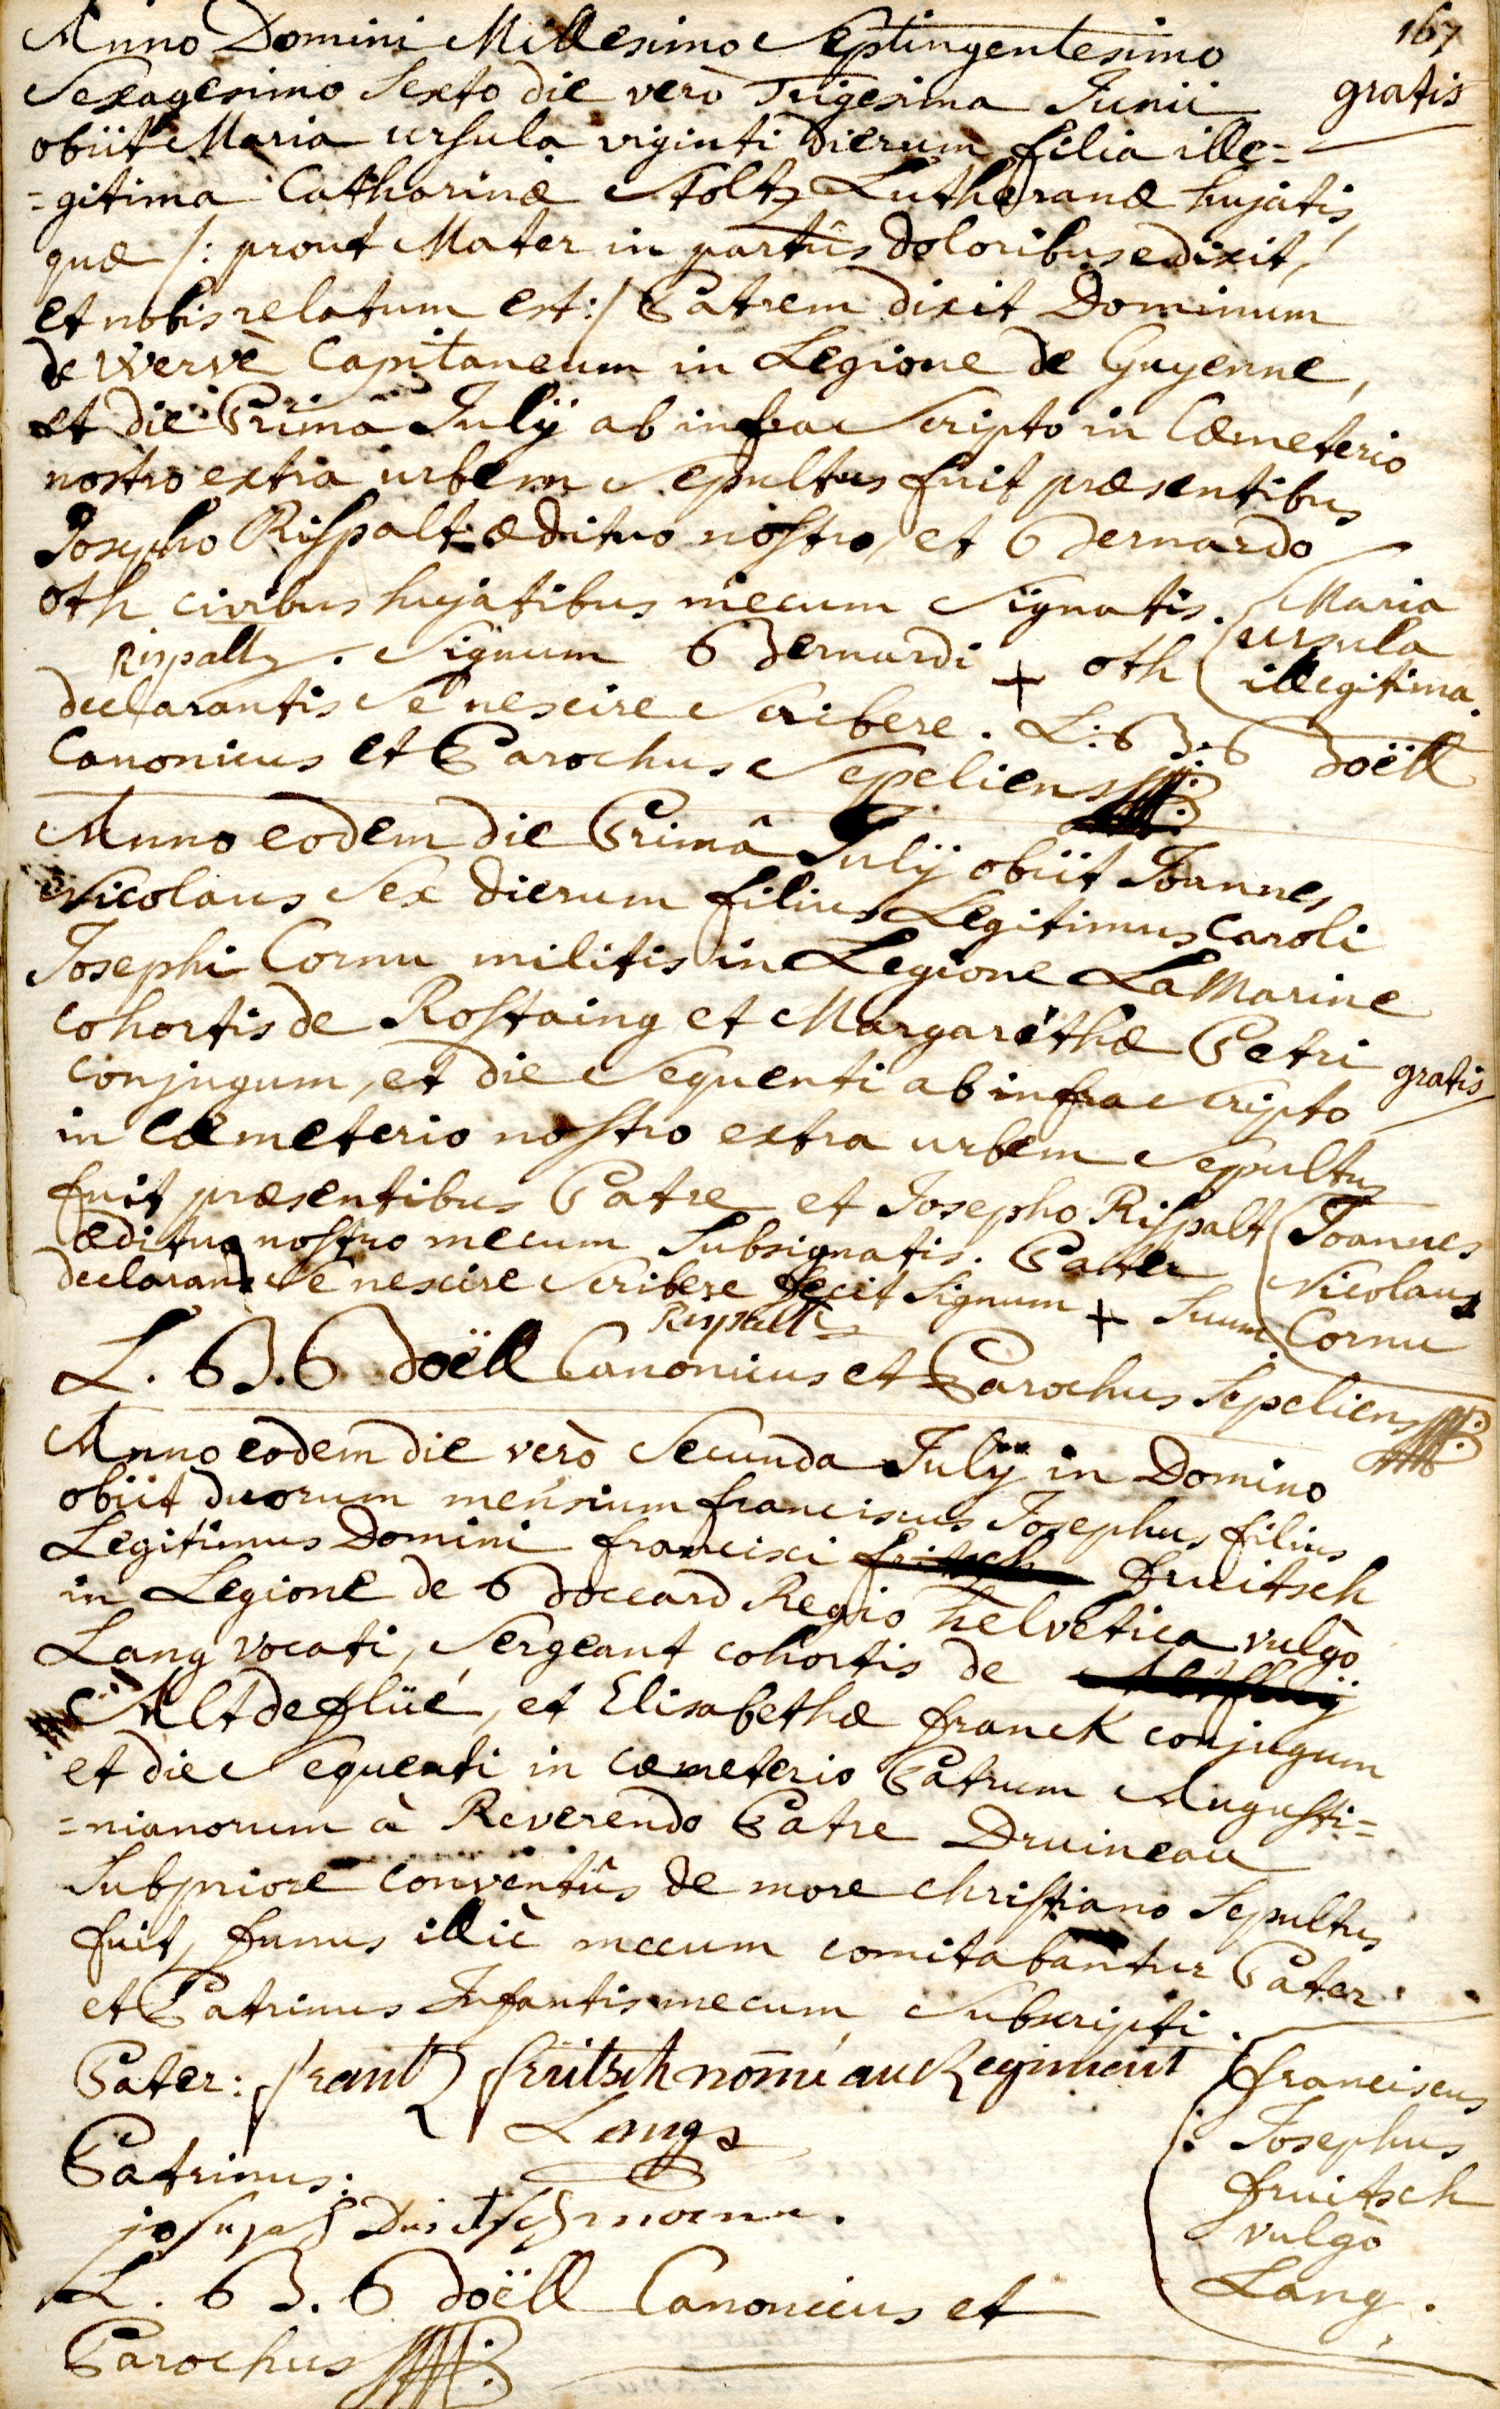 167
Anno Domini Millesimo Septingentesimo
Sexagesimo Sexto die verò Trigesima Junii
gratis
obiit Maria ursula viginti dierum filia ille=
=gitima Catharinæ Stoltz Lutheranæ hujatis,
quæ /: prout Mater in partûs doloribus edixit,
et nobis relatum est :/ Patrem dixit Dominum
de Wervè Capitaneum in Legione de Guyenne,
et die Primâ Julij ab infra Scripto in Cœmeterio
nostro extra urbem Sepultus fuit præsentibus
Josepho Rispalt ædituo nostro, et Bernardo
oth civibus hujatibus mecum Signatis.
Rispallt. Signum Bernardi + oth
declarantis Se nescire Scribere. L: B: Boëll
Canonicus et Parochus Sepeliens
Maria
ursula
illegitima.
Anno eodem die Primâ Julij obiit Joannes
Nicolaus Sex dierum filius Legitimus Caroli
Josephi Cornu militis in Legione La Marine
cohortis de Rostaing et Margarethæ Petri
conjugum, et die Sequenti ab infra Scripto
gratis
in Cœmeterio nostro extra urbem Sepultus
fuit præsentibus Patre et Josepho Rispalt
ædituo nostro mecum Subsignatis. Pater
declarans Se nescire Scribere fecit Signum + Suum.
Rispallt
Joannes
Nicolaus
Cornu
L. B. Boëll Canonicus et Parochus Sepeliens
Anno eodem die verò Secunda Julij in Domino
obiit duorum mensium franciscus Josephus filius
Legitimus Domini francisci fritsch fruitsch
in Legione de Boccard Regio helvetica vulgò
Lang vocati, Sergeant cohortis de
Alt de flüé, et Elisabethæ franck conjugum
et die Sequenti in cœmeterio Patrum Augusti=
=nianorum à Reverendo Patre Druineau
Subpriore conventûs de more christiano Sepultus
fuit, funus illìc mecum comitabantur Pater
et Patrinus Infantis mecum Subscripti.
Pater: frantz früitsch nom̄é au Regiment
Lang
Patrinus:
L. B. Boëll Canonicus et
Parochus
franciscus
Josephus
fruitsch
vulgò
Lang.